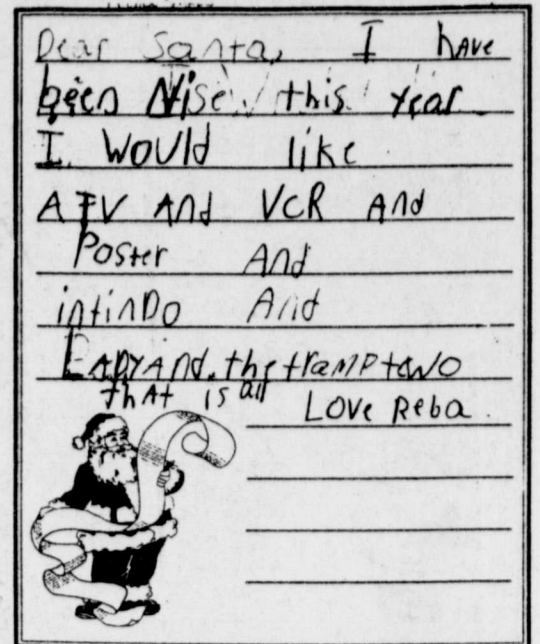 Dear Santa, I have
been Nise this Year
I. WoUld like
A TV And VCR And
Poster And
intinDo And
LADYAnd.the tramp tewo
that is all
Love Reba.